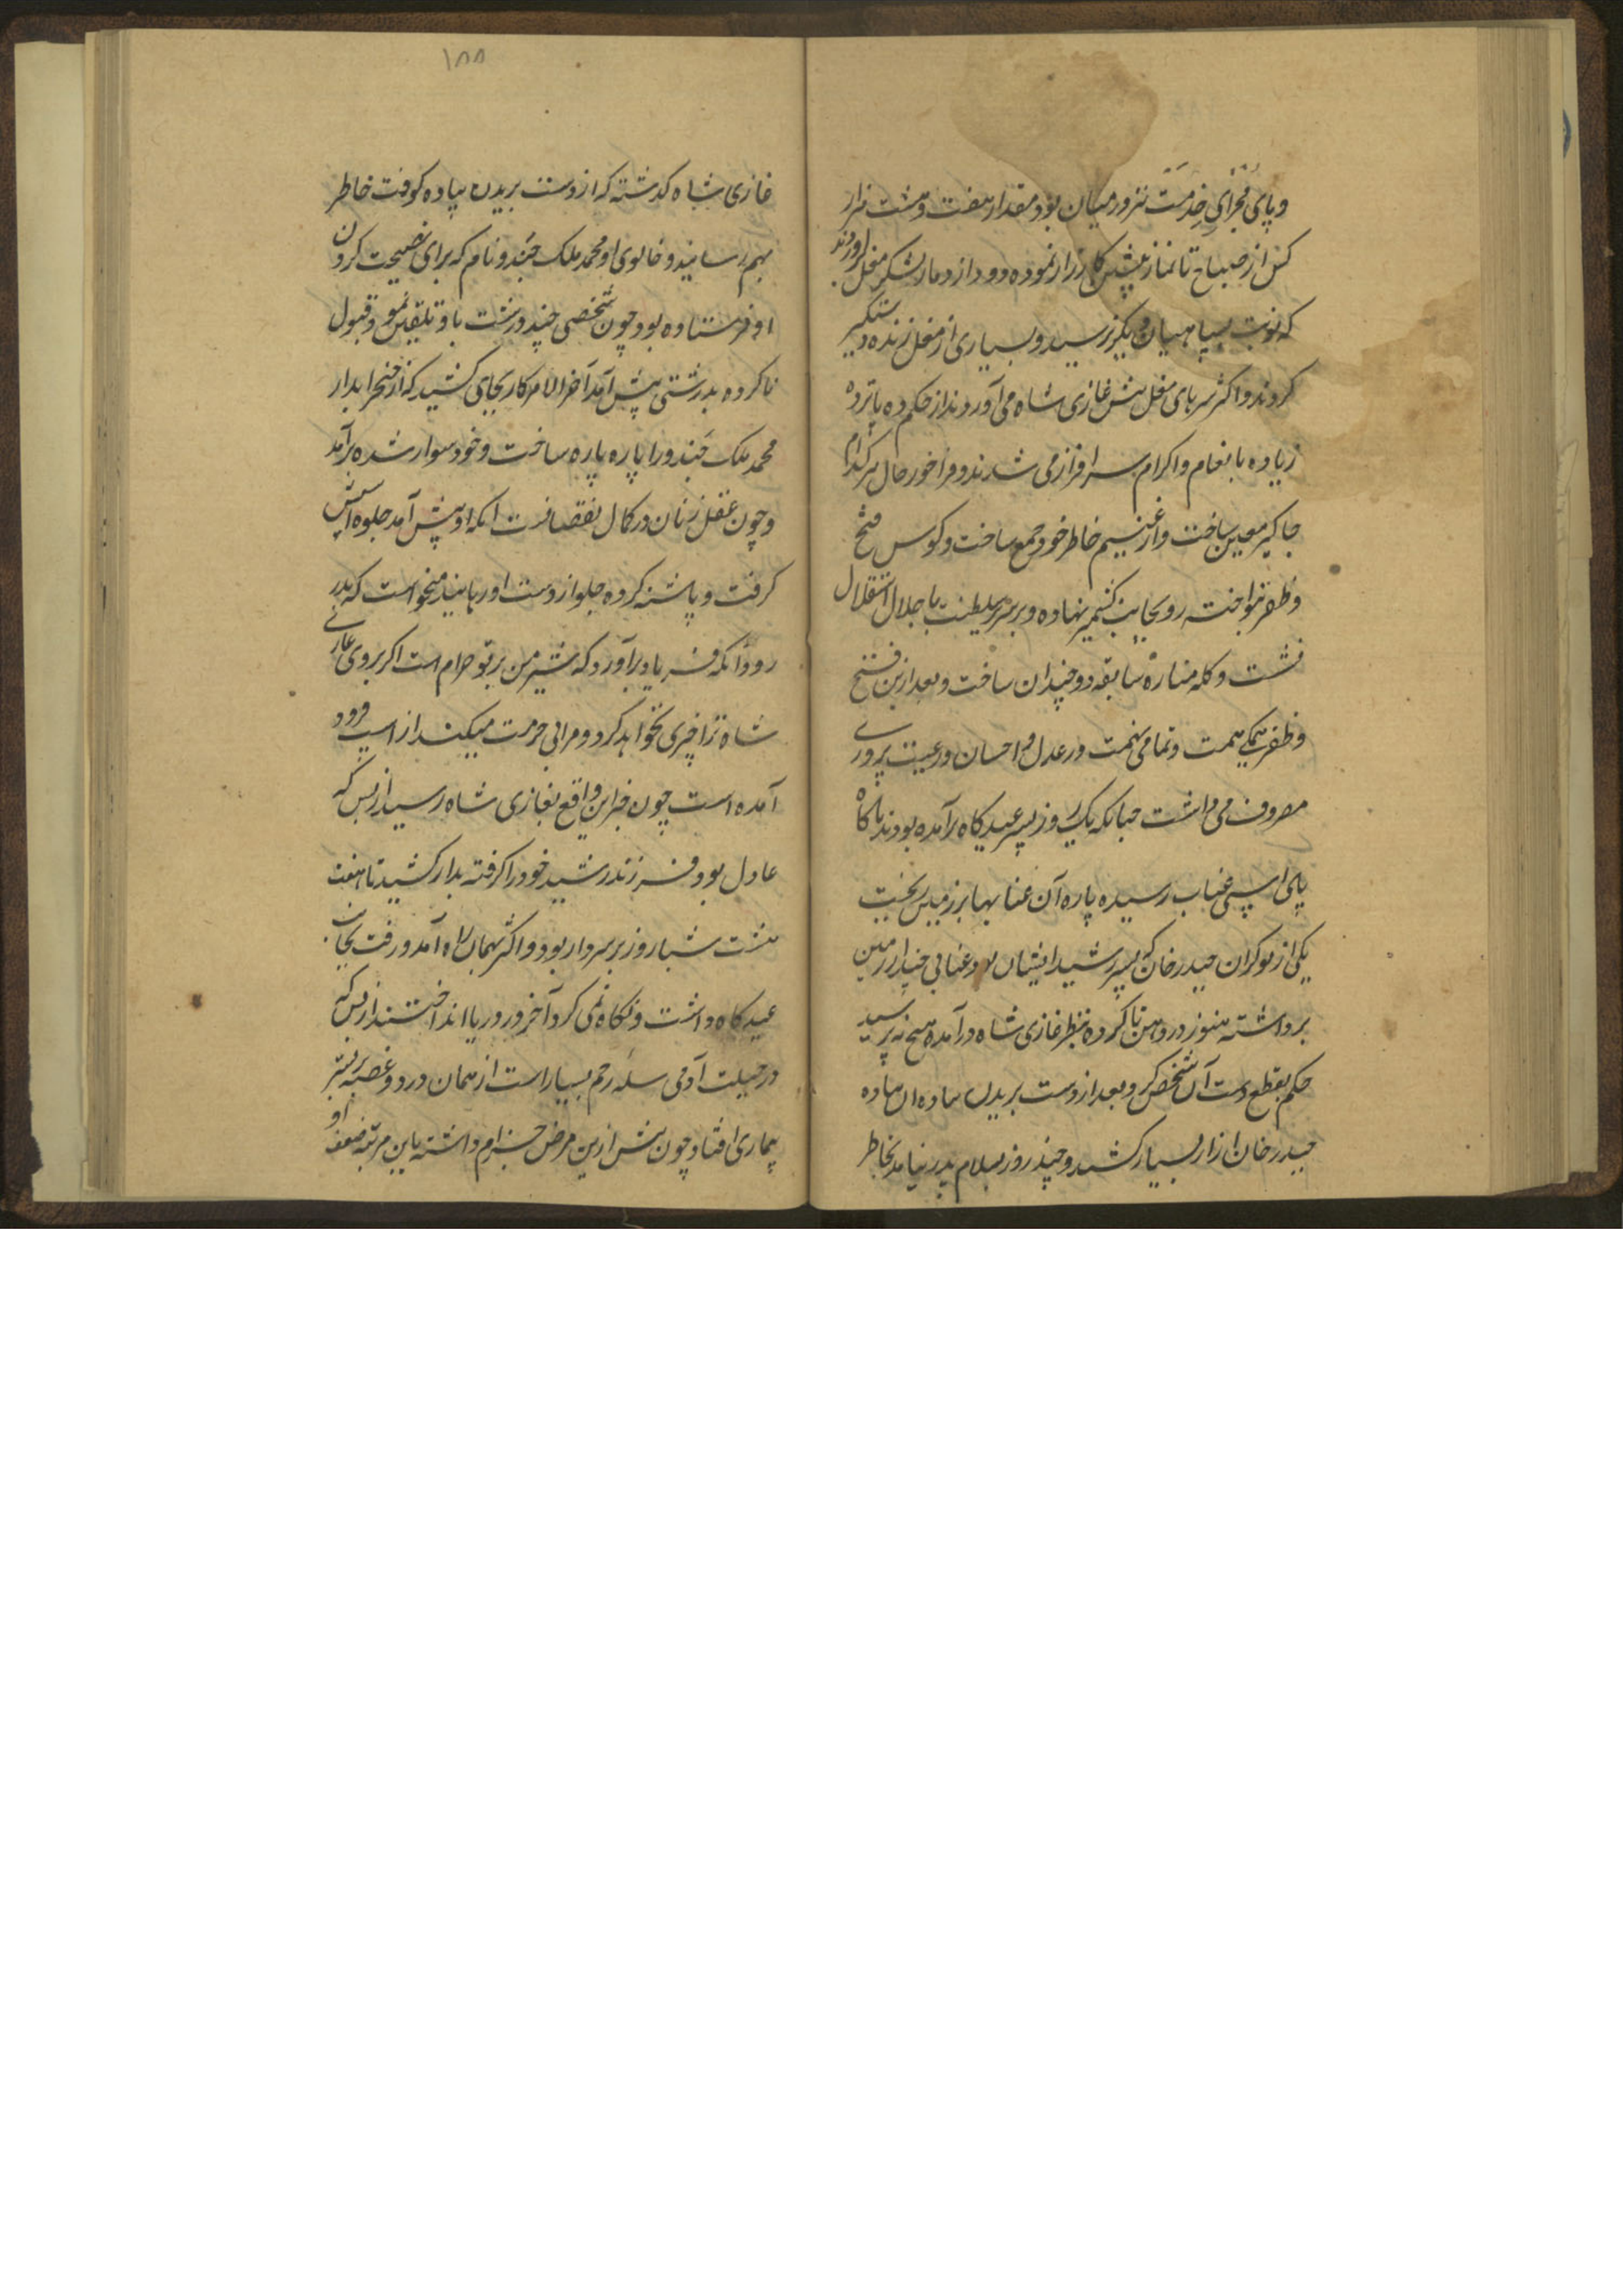 و پای مجرای خدمت نیز در میان بود مقدار هفت و هشت هزار
کس از صباح تا نماز پیشین کارزار نموده دود از دمار لشکر مغل برآوردند
که نوبت بسپاهیان دیگر نرسید و بسیاری از مغل زنده دستگیر
کردند و اکثر سرهای مغل پیش غازی شاه می آوردند از حکم ده پانزده
زیاده بانعام و اکرام سرافراز می شدند و فراخور حال هر کدام
جاگیر معین ساخت و از غنیم خاطر خود جمع ساخت و کوس فتح
و ظفر نواخته رو بجانب کشمیر نهاده و بر سریر سلطنت با جلال استقلال
نشست و کله مناره سابقه دو چندان ساخت و بعد ازین فتح
و ظفر همگی همت و تمامی نهمت در عدل و احسان و رعیت پروری
مصروف می داشت چنانکه یک روز بسیر عیدگاه برآمده بودند ناگاه
پای اسپی عناب رسیده پاره آن عنابها بر زمین ریخت
یکی از نوکران حیدر خان که پسر رشید ایشان بود عنابی چند از زمین
برداشته هنوز در دهن ناکرده بنظر غازی شاه درآمده هیچ نپرسید
حکم بقطع دست آن شخص کرد و بعد از دست بریدن
حیدر خان آزار بسیار کشید و چند روز بسلام پدر نیامد بخاطر
۱۸۸
غازی شاه گذشته که از دست بریدن پیاده کوفت خاطر
بهم رسانیده و خالوی او محمد ملک جندو نام که برای نصیحت کردن
او فرستاده بود چون شخصی چند درشت باو تلقین نمود قبول
ناکرده بدرشتی پیش آمد آخر الامر کار بجای کشید که از خنجر ابدار
محمد ملک جندو را پاره پاره ساخت و خود سوار شده برآمد
و چون عقل زنان در کمال نقصانست انکه او پیش آمد جلوه اسپش
گرفت و پاشنه کرده جلو از دست او رهانید میخواست که بدر
رود انکه فریاد برآورد که شیر من بر تو حرام است اگر بروی غازی
شاه ترا چیزی نخواهد کرد و مرا بی حرمت میکند از اسپ فرود
آمده است چون خبر این واقع بغازی شاه رسید از بس که
عادل بود فرزند رشید خود را گرفته بدار کشید تا هفت
هشت شبا روز بر سر دار بود و اکثر بهمان راه آمد و رفت بجانب
عیدگاه داشت و نگاه نمی کرد آخر در دریا انداختند از بس که
در جبلت آدمی سله رحم بسیار است از همان درد و غصه بر بستر
بیماری افتاد چون پیش ازین مرض جذام داشته باین مرتبه ضعف او